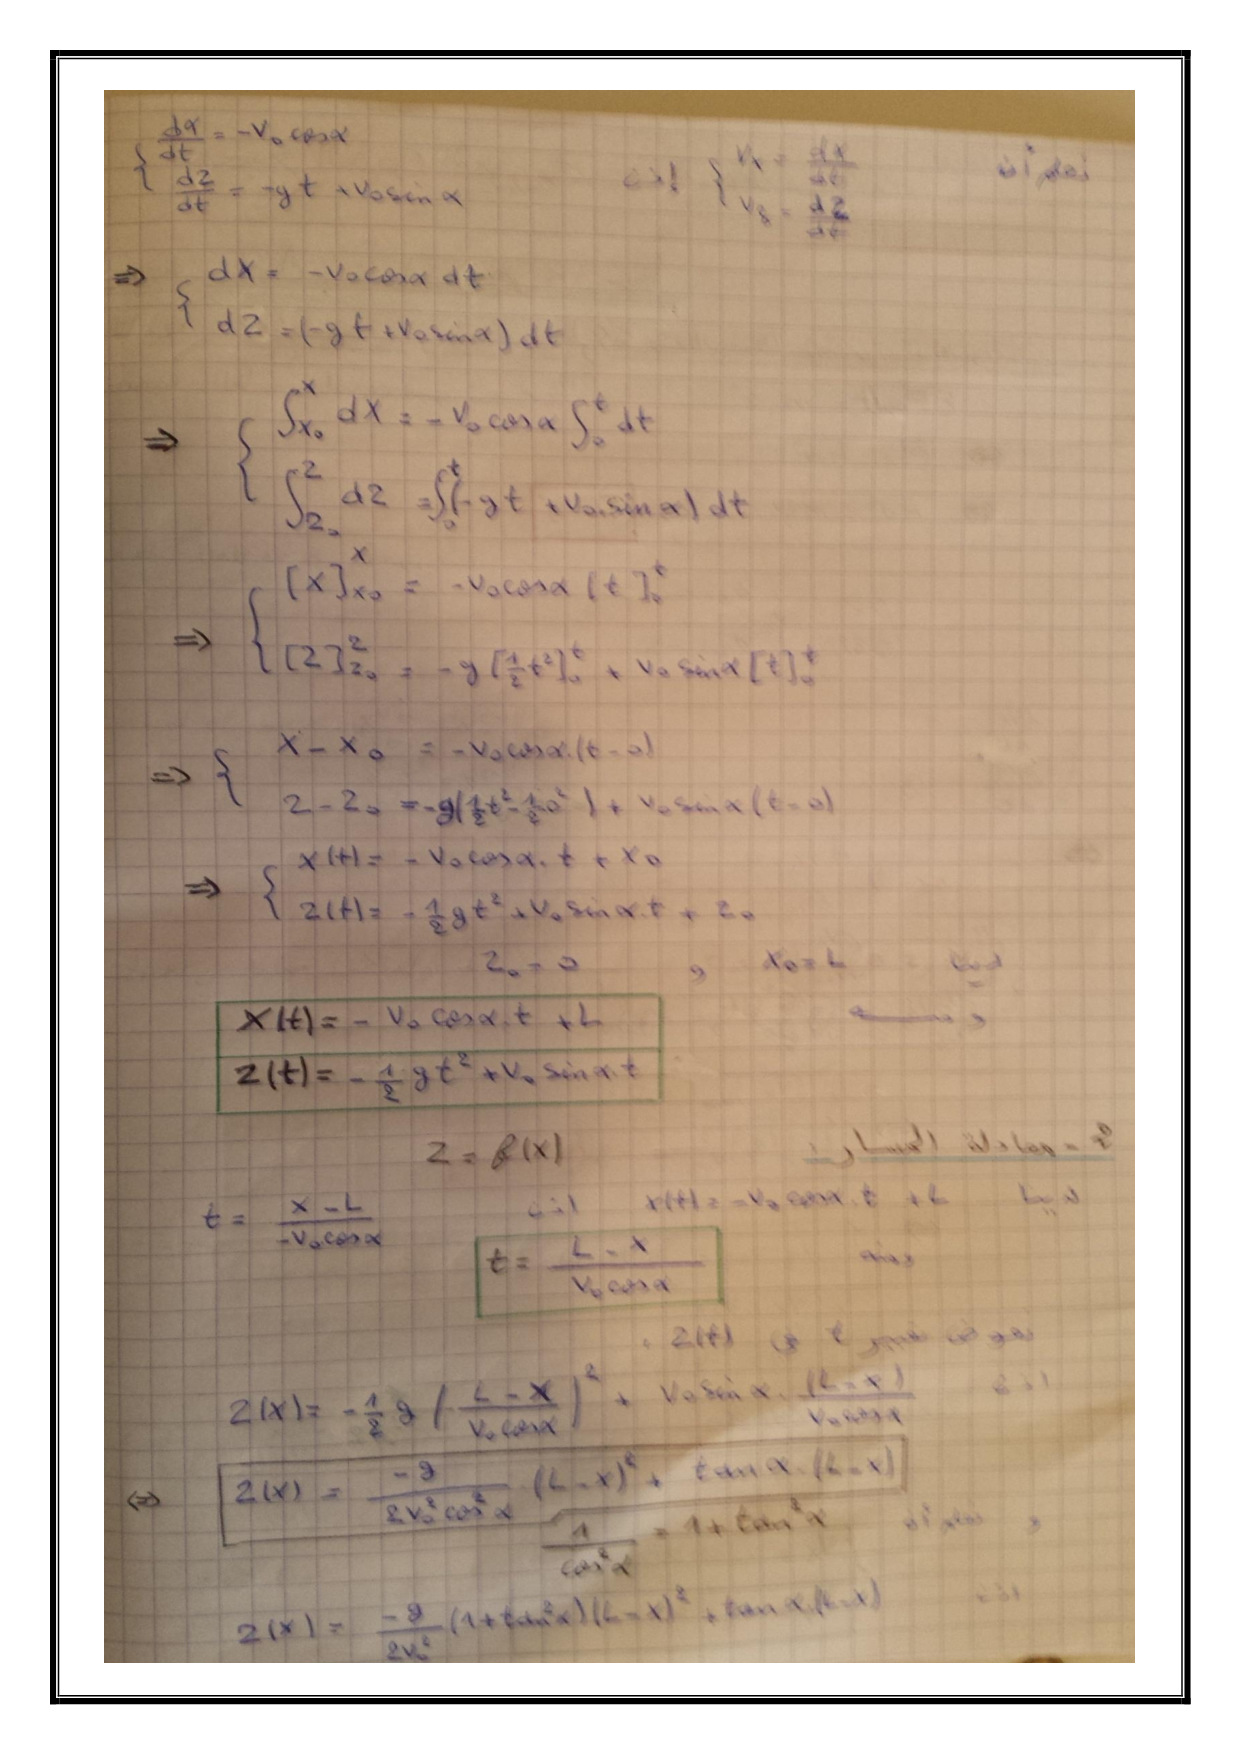 نعلم أن { Vx = dx/dt ; Vz = dz/dt إذن { dx/dt = -V₀ cosα ; dz/dt = -gt + V₀ sin α
⇒ { dX = -V₀ cosα dt
dZ = (-gt + V₀ sinα) dt
⇒ { ∫_{X₀}^{X} dX = -V₀ cosα ∫₀^t dt
∫_{Z₀}^{Z} dZ = ∫₀^t (-gt + V₀.sin α) dt
⇒ { [X]_{X₀}^{X} = -V₀ cosα [t]₀^t
[Z]_{Z₀}^{Z} = -g [½ t²]₀^t + V₀ sinα [t]₀^t
⇒ { X - X₀ = -V₀ cosα.(t-0)
Z - Z₀ = -g(½t² - ½0²) + V₀ sinα (t-0)
⇒ { X(t) = -V₀ cosα. t + X₀
Z(t) = -½ gt² + V₀ sin α.t + Z₀
لدينا X₀ = L و Z₀ = 0
X(t) = - V₀ cosα. t + L
Z(t) = -½ gt² + V₀ sin α.t
2° - معادلة المسار: Z = f(X)
لدينا X(t) = -V₀ cosα. t + L إذن t = (X - L)/(-V₀ cosα)
ومنه t = (L - X)/(V₀ cosα)
نعوض تعبير t في Z(t) :
إذن Z(X) = -½ g ((L - X)/(V₀ cosα))² + V₀ sin α . (L-X)/(V₀ cosα)
⇔ Z(X) = -g/(2V₀² cos² α) . (L-X)² + tan α.(L-X)
و نعلم أن 1/cos²α = 1 + tan² α
إذن Z(X) = -g/(2V₀²) (1+tan²α)(L-X)² + tan α.(L-X)